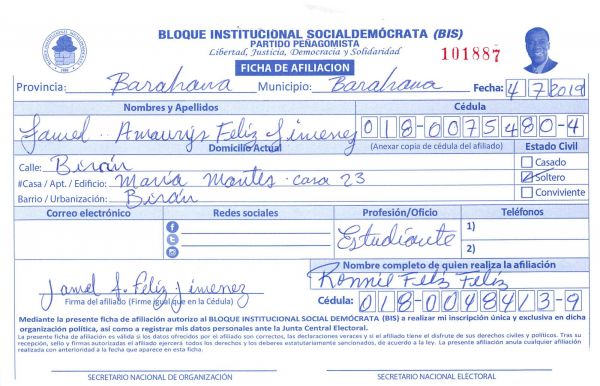 BLOQUE INSTITUCIONAL SOCIALDEMÓCRATA (BIS)
PARTIDO PEÑAGOMISTA
Libertad, Justicia, Democracia y Solidaridad
101887
FICHA DE AFILIACION
Provincia: Barahona Municipio: Barahona Fecha: 4/7/2019
Nombres y Apellidos Cédula
Jamel Amaurys Feliz Jimenez 018-0075480-4
Domicilio Actual (Anexar copia de cédula del afiliado) Estado Civil
Calle: Birán Casado
#Casa / Apt. / Edificio: María Montes casa 23 Soltero
Barrio / Urbanización: Birán Conviviente
Correo electrónico Redes sociales Profesión/Oficio Teléfonos
Estudiante 1)
2)
Nombre completo de quien realiza la afiliación
Jamel A. Feliz Jimenez Ronnie Feliz Feliz
Firma del afiliado (Firme igual que en la Cédula) Cédula: 018-0048413-9
Mediante la presente ficha de afiliación autorizo al BLOQUE INSTITUCIONAL SOCIAL DEMÓCRATA (BIS) a realizar mi inscripción única y exclusiva en dicha
organización política, así como a registrar mis datos personales ante la Junta Central Electoral.
La presente ficha de afiliación es válida si los datos ofrecidos por el afiliado son correctos, las declaraciones veraces y si el afiliado tiene el disfrute de sus derechos civiles y políticos. Tras su
recepción, sello y firmas autorizadas el afiliado ejercerá todos los derechos y los deberes estatutariamente sancionados, de acuerdo a la ley. La presente afiliación anula cualquier afiliación
realizada con anterioridad a la fecha que aparece en esta ficha.
SECRETARIO NACIONAL DE ORGANIZACIÓN SECRETARIO NACIONAL ELECTORAL